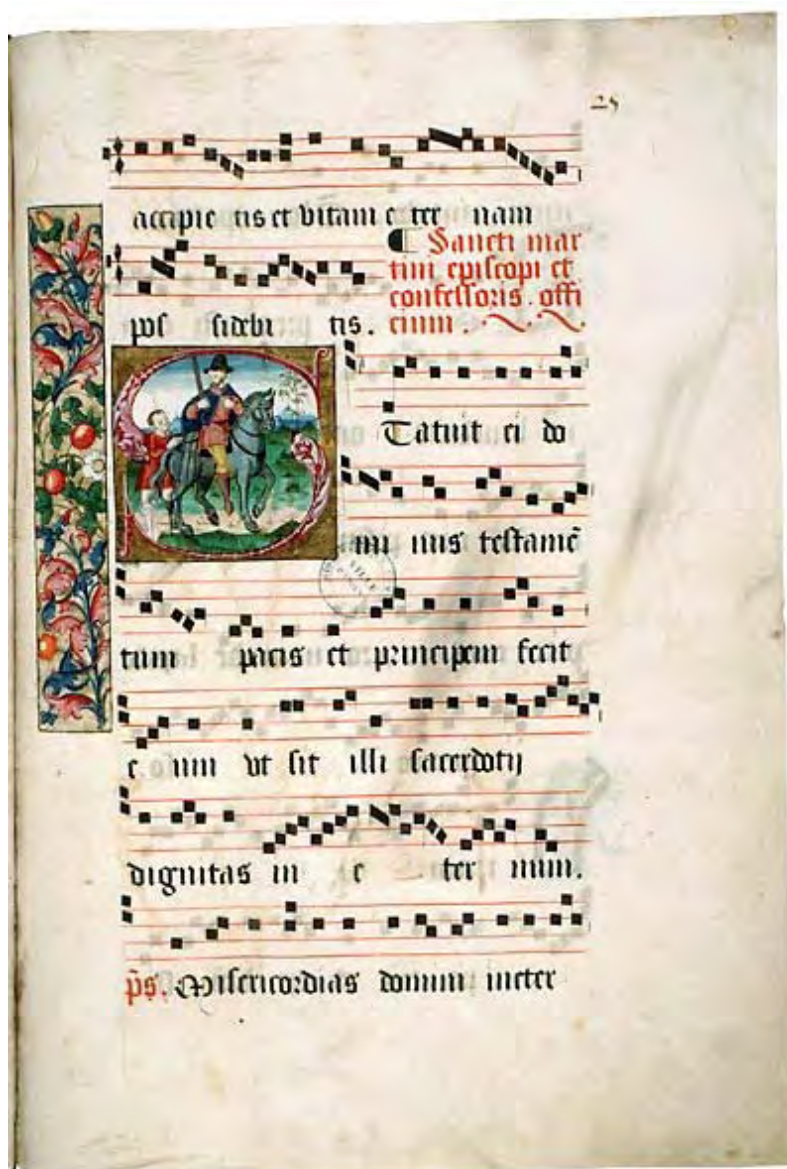 25
accipie tis et vitam e ter nam
¶ Sancti mar
tini episcopi et
confessoris . offi
cium .
pos sidebi tis .
Tatuit ei do
mi nus testamē
tum pacis et principem fecit
e um vt sit illi sacerdotij
dignitas in e ter num.
p̄s. Misericordias domini ineter